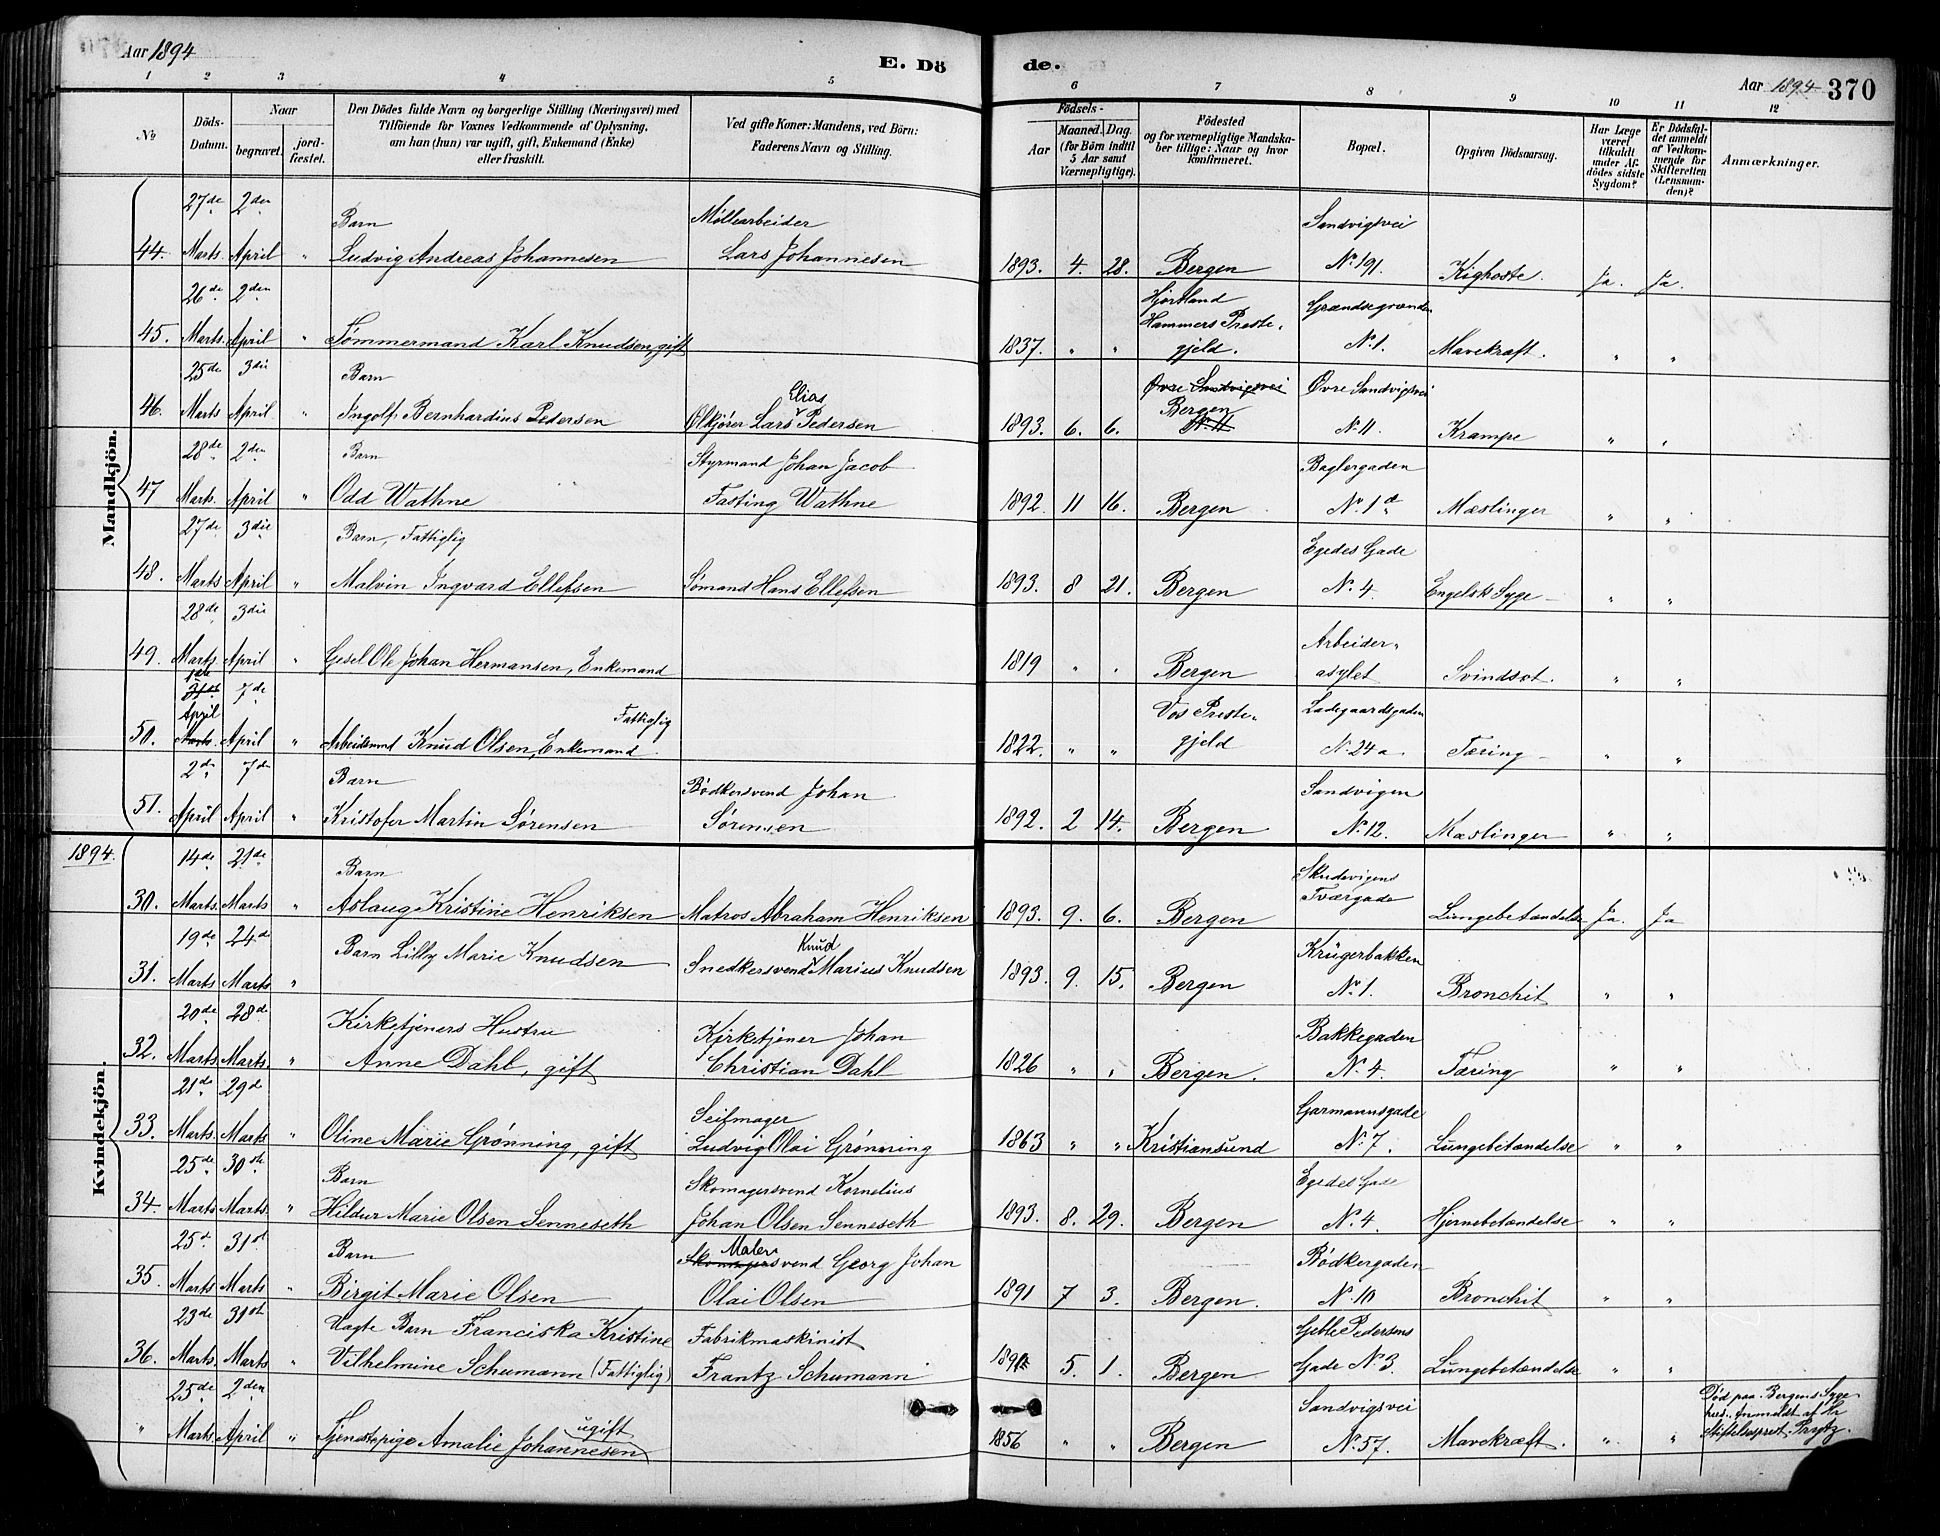 Aar 1894
E. Dö
de.
Aar 1894 370
1 2 3 4 5 6 7 8 9 10 11 12
No
Döds-Datum.
Naar
begravet.
jord-fæstet.
Den Dödes fulde Navn og borgerlige Stilling (Næringsvei) med
Tilföiende for Voxnes Vedkommende af Oplysning,
om han (hun) var ugift, gift, Enkemand (Enke)
eller fraskilt.
Ved gifte Koner: Mandens, ved Börn:
Faderens Navn og Stilling.
Födsels-
Aar
Maaned. Dag.
(for Börn indtil
5 Aar samt
Værnepligtige).
Födested
og for værnepligtige Mandska-
ber tillige: Naar og hvor
konfirmeret.
Bopæl.
Opgiven Dödsaarsag.
Har Læge
været
tilkaldt
under Af-
dödes sidste
Sygdom?
Er Dödsfal-
det anmeldt
af Vedkom-
mende for
Skifteretten
(Lensman-
den)?
Anmærkninger.
Mandkjön.
27de 2den Barn Møllearbeider Sandvigsvei
44. Marts. April " Ludvig Andreas Johannesen Lars Johannesen 1893. 4. 28. Bergen No 191. Kighoste. Ja. Ja.
26de 2den Hjortland Grændsegrænden
Hammers Præste-
45. Marts. April " Tømmermand Karl Knudsen, gift 1837. " " gjeld. No 1. Mavekræft. " "
25de 3die Barn Elias Øvre Sandvigsvei Øvre Sandvigsvei
46. Marts April " Ingolf Bernhardius Pedersen Ølkjører Lars Pedersen 1893. 6. 6. Bergen No 11 No 11. Krampe " "
28de 2den Barn Styrmand Johan Jacob Baglergaden
47 Marts. April " Odd Wathne Fasting Wathne 1892. 11 16. Bergen No 1d Mæslinger " "
27de 3die Barn, Fattiglig Egedes Gade
48. Marts April " Malvin Ingvard Ellefsen Sømand Hans Ellefsen 1893. 8 21. Bergen No 4. Engelsk Syge " "
28de 3die Arbeider-
49. Marts April " Gesel Ole Johan Hermansen, Enkemand 1819 " " Bergen asylet Svindsot. " "
1ste 7de Fattiglig Vos Præste- Ladegaardsgaden
April
50. Marts April " Arbeidsmand Knud Olsen, Enkemand 1822. " " gjeld No 24a Tæring " "
2den 7de Barn Bødkersvend Johan Sandvigen
51. April April " Kristofer Martin Sørensen Sørensen 1892. 2 14. Bergen No 12. Mæslinger " "
1894.
Kvindekjön.
14de 21de Barn Skudevigens
30. Marts. Marts " Aslaug Kristine Henriksen Matros Abraham Henriksen 1893. 9. 6. Bergen Tværgade Lungebetændelse Ja. Ja
19de 24de Barn Lilly Marie Knudsen Knud Krügerbakken
31. Marts Marts " Snedkersvend Marius Knudsen 1893. 9. 15. Bergen No 1. Bronchit " "
20de 28de Kirketjeners Hustru Kirketjener Johan Bakkegaden
32. Marts Marts. " Anne Dahl, gift Christian Dahl 1826 " " Bergen. No 4. Tæring " "
21de 29de Seilmager Garmannsgade
33. Marts. Marts " Oline Marie Grønning, gift Ludvig Olai Grønning 1863 " " Kristiansund No 7. Lungebetændelse " "
25de 30te Barn Skomagersvend Kornelius Egedes Gade
34. Marts Marts. " Hildur Marie Olsen Senneseth Johan Olsen Senneseth 1893. 8. 29. Bergen No 4. Hjernebetændelse " "
25d 31st Barn Maler Skomagersvend Georg Johan Bødkergaden
35. Marts Marts " Birgit Marie Olsen Olai Olsen 1891 7 3. Bergen. No 10 Bronchit " "
23de 31st Uægte Barn Franciska Kristine Fabrikmaskinist Geble Pedersens
36. Marts. Marts " Vilhelmine Schumann (Fattiglig) Frantz Schumann 5. 1. Bergen Gade No 3. Lungebetændelse " "
25de 2den ugift Sandvigsvei Død paa Bergens Syge-
hus. Anmeldt af Hr
" Marts. April " Tjenestepige Amalie Johannesen 1856 " " Bergen No 57. Mavekræft. " " Stiftelsesprest Prytz.